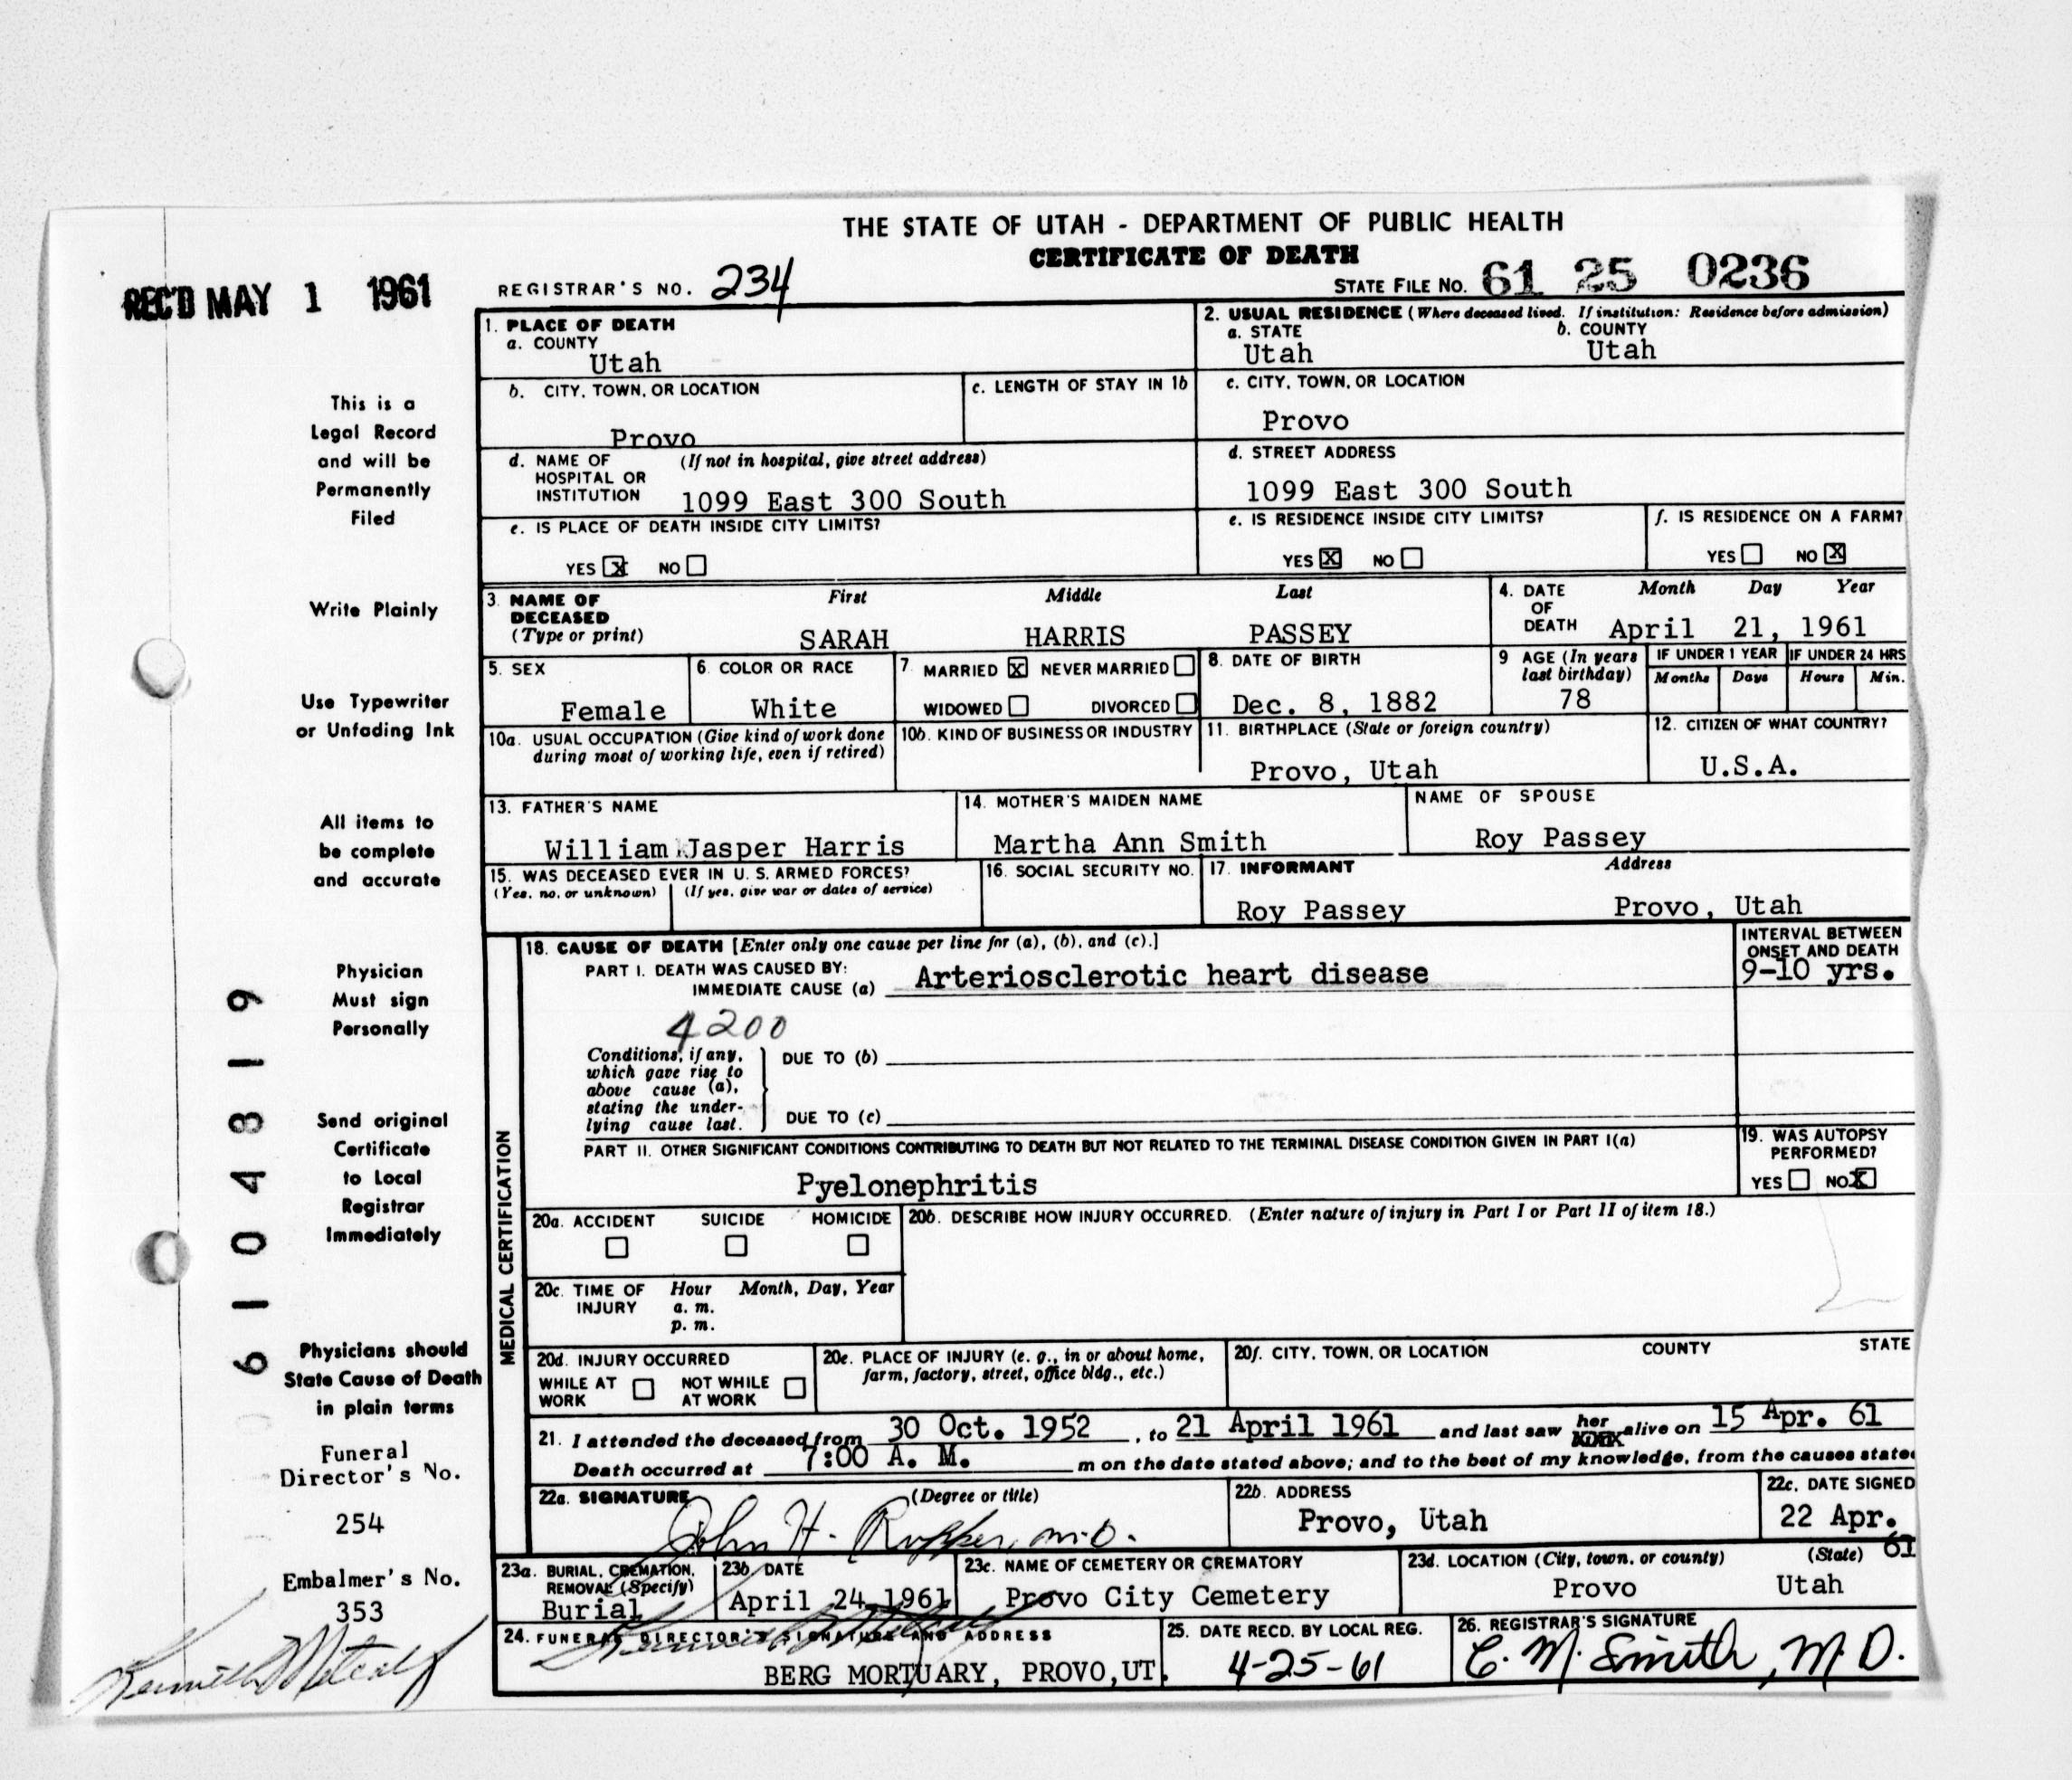 THE STATE OF UTAH - DEPARTMENT OF PUBLIC HEALTH
CERTIFICATE OF DEATH
REC'D MAY 1 1961
REGISTRAR'S NO. 234
STATE FILE NO. 61 25 0236
1. PLACE OF DEATH
a. COUNTY
Utah
2. USUAL RESIDENCE (Where deceased lived. If institution: Residence before admission)
a. STATE b. COUNTY
Utah Utah
b. CITY, TOWN, OR LOCATION
Provo
c. LENGTH OF STAY IN 1b
c. CITY, TOWN, OR LOCATION
Provo
d. NAME OF (If not in hospital, give street address)
HOSPITAL OR
INSTITUTION 1099 East 300 South
d. STREET ADDRESS
1099 East 300 South
e. IS PLACE OF DEATH INSIDE CITY LIMITS?
YES X NO
e. IS RESIDENCE INSIDE CITY LIMITS?
YES X NO
f. IS RESIDENCE ON A FARM?
YES NO X
3. NAME OF First Middle Last
DECEASED
(Type or print) SARAH HARRIS PASSEY
4. DATE Month Day Year
OF
DEATH April 21, 1961
5. SEX
Female
6. COLOR OR RACE
White
7. MARRIED X NEVER MARRIED
WIDOWED DIVORCED
8. DATE OF BIRTH
Dec. 8, 1882
9 AGE (In years
last birthday)
78
IF UNDER 1 YEAR
Months Days
IF UNDER 24 HRS
Hours Min.
10a. USUAL OCCUPATION (Give kind of work done
during most of working life, even if retired)
10b. KIND OF BUSINESS OR INDUSTRY
11. BIRTHPLACE (State or foreign country)
Provo, Utah
12. CITIZEN OF WHAT COUNTRY?
U.S.A.
13. FATHER'S NAME
William Jasper Harris
14. MOTHER'S MAIDEN NAME
Martha Ann Smith
NAME OF SPOUSE
Roy Passey
15. WAS DECEASED EVER IN U. S. ARMED FORCES?
(Yes, no, or unknown) (If yes, give war or dates of service)
16. SOCIAL SECURITY NO.
17. INFORMANT Address
Roy Passey Provo, Utah
MEDICAL CERTIFICATION
18. CAUSE OF DEATH [Enter only one cause per line for (a), (b), and (c).]
PART I. DEATH WAS CAUSED BY:
IMMEDIATE CAUSE (a) Arteriosclerotic heart disease
INTERVAL BETWEEN
ONSET AND DEATH
9-10 yrs.
4200
Conditions, if any,
which gave rise to
above cause (a),
stating the under-
lying cause last.
DUE TO (b)
DUE TO (c)
PART II. OTHER SIGNIFICANT CONDITIONS CONTRIBUTING TO DEATH BUT NOT RELATED TO THE TERMINAL DISEASE CONDITION GIVEN IN PART I(a)
Pyelonephritis
19. WAS AUTOPSY
PERFORMED?
YES NO X
20a. ACCIDENT SUICIDE HOMICIDE
20b. DESCRIBE HOW INJURY OCCURRED. (Enter nature of injury in Part I or Part II of item 18.)
20c. TIME OF Hour Month, Day, Year
INJURY a. m.
p. m.
20d. INJURY OCCURRED
WHILE AT NOT WHILE
WORK AT WORK
20e. PLACE OF INJURY (e. g., in or about home,
farm, factory, street, office bldg., etc.)
20f. CITY, TOWN, OR LOCATION COUNTY STATE
21. I attended the deceased from 30 Oct. 1952, to 21 April 1961 and last saw her alive on 15 Apr. 61
Death occurred at 7:00 A. M. m on the date stated above; and to the best of my knowledge, from the causes state
22a. SIGNATURE (Degree or title)
John H. Rupper, M.D.
22b. ADDRESS
Provo, Utah
22c. DATE SIGNED
22 Apr. 61
23a. BURIAL, CREMATION,
REMOVAL (Specify)
Burial
23b. DATE
April 24 1961
23c. NAME OF CEMETERY OR CREMATORY
Provo City Cemetery
23d. LOCATION (City, town, or county) (State)
Provo Utah
24. FUNERAL DIRECTOR'S SIGNATURE AND ADDRESS
BERG MORTUARY, PROVO, UT.
25. DATE RECD. BY LOCAL REG.
4-25-61
26. REGISTRAR'S SIGNATURE
C. M. Smith, M.D.
This is a
Legal Record
and will be
Permanently
Filed
Write Plainly
Use Typewriter
or Unfading Ink
All items to
be complete
and accurate
Physician
Must sign
Personally
Send original
Certificate
to Local
Registrar
Immediately
Physicians should
State Cause of Death
in plain terms
Funeral
Director's No.
254
Embalmer's No.
353
61 04819